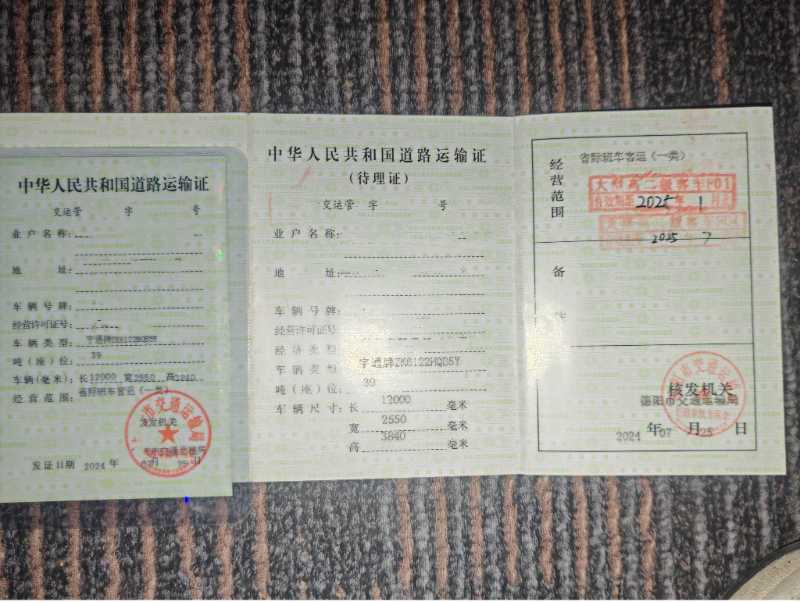 中华人民共和国道路运输证
交运管 字 号
业户名称:
地 址:
车辆号牌:
经营许可证号:
车辆类型: 宇通牌ZK6122HQB5Y
吨(座)位: 39
车辆(毫米): 长12000 宽2550 高3840
经营范围: 省际班车客运(一类)
核发机关
市交通运输局
发证日期 2024 年
中华人民共和国道路运输证
(待理证)
交运管 字 号
业户名称:
地 址:
车辆号牌:
经营许可证号:
经济类型:
车辆类型: 宇通牌ZK6122HQB5Y
吨(座)位: 39
车辆尺寸: 长 12000 毫米
宽 2550 毫米
高 3840 毫米
经营范围
省际班车客运(一类)
大型高二级客车
有效期至 2025 年 1 月
2025 7
备
核发机关
德阳市交通运输局
2024 年 07 月 25 日